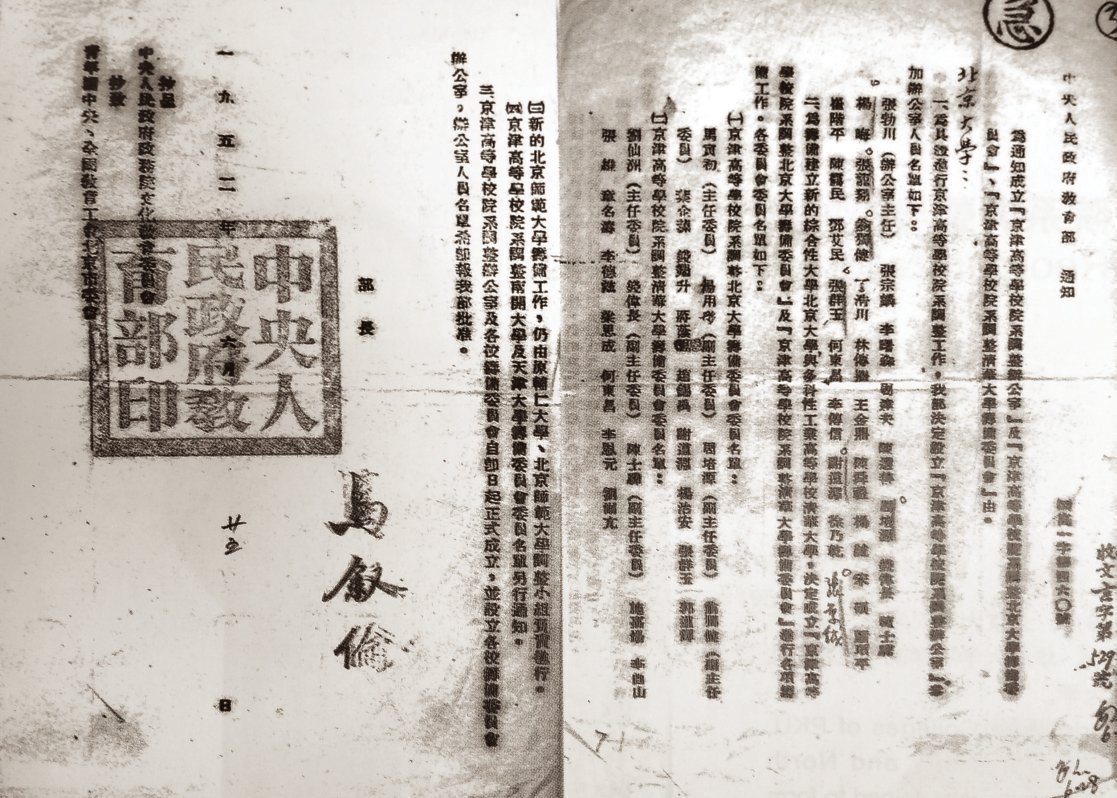 急
中央人民政府教育部 通知
爲通知成立『京津高等學校院系調整辦公室』及『京津高等學校院系調整北京大學籌備委
員會』、『京津高等學校院系調整淸華大學籌備委員會』由。
北京大學：
一、爲具體進行京津高等學校院系調整工作，我部決定設立『京津高等學校院系調整辦公室』，參
加辦公室人員名單如下：
張勃川（辦公室主任） 張宗麟 李曙森 周培源 錢偉長 陳士驊
楊晦 張龍翔 丁浩川 林傳鼎 王金鼎 陳舜禮 楊 宋碩
陳 鄧艾民 張群玉 何東昌 李傳信 謝道淵 徐乃乾 張景鉞
二、爲籌備建立新的綜合性大學北京大學與多科性工業高等學校淸華大學，決定成立『京津高等
學校院系調整北京大學籌備委員會』及『京津高等學校院系調整淸華大學籌備委員會』進行各項籌
備工作。各委員會委員名單如下：
㈠京津高等學校院系調整北京大學籌備委員會委員名單：
馬寅初（主任委員） 湯用彤（副主任委員） 周培源（副主任委員） （副主任
委員） 錢端升 蔣蔭恩 趙錫禹 謝道淵 楊治安 張群玉 郭道暉
㈡京津高等學校院系調整淸華大學籌備委員會委員名單：
劉仙洲（主任委員） 錢偉長（副主任委員） 陳士驊（副主任委員） 施嘉煬 李酉山
張維 章名濤 李德滋 梁思成 何東昌 李恩元
㈢新的北京師範大學籌備工作，仍由原輔仁大學、北京師範大學調整小組負責進行。
㈣京津高等學校院系調整南開大學及天津大學籌備委員會委員名單另行通知。
三、京津高等學校院系調整辦公室及各校籌備委員會自卽日起正式成立，並設立各校籌備委員會
辦公室，辦公室人員名單希卽報我部批准。
部長
馬叙倫
中央人民政府教育部印
一九五二年六月廿五日
抄呈
中央人民政府政務院文化教育委員會
抄致
青年團中央、全國教育工會、北京市委會